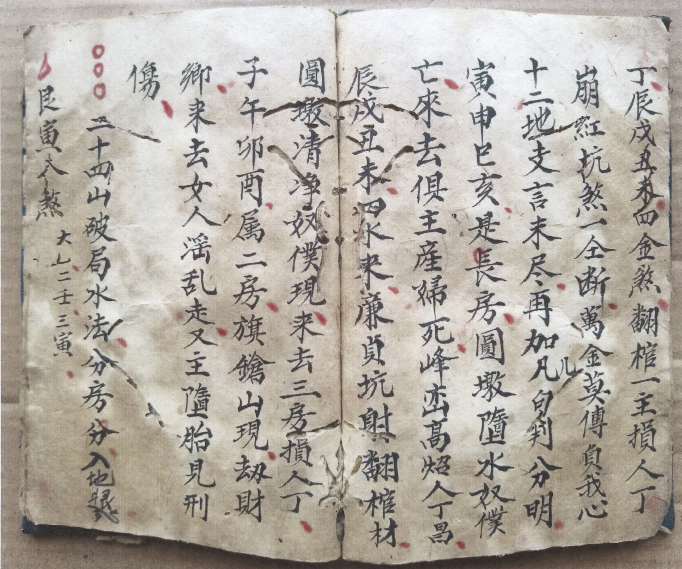 丁辰戌丑未四金煞翻棺一主損人丁
崩紅坑煞一仝断萬金莫傳負我心
十二地支言未尽再加凡白判分明
寅申巳亥是長房圓墩墮水奴僕
亡來去俱主產婦死峰巒高炤人丁昌
辰戌丑未四水来廉貞坑射翻棺材
圓墩清净奴僕現来去三房損人丁
子午卯酉属二房旗鎗山現劫財
鄉来去女人淫乱走又主墮胎見刑
傷
二十四山破局水法分房分入地
艮寅 煞
大 二壬三寅